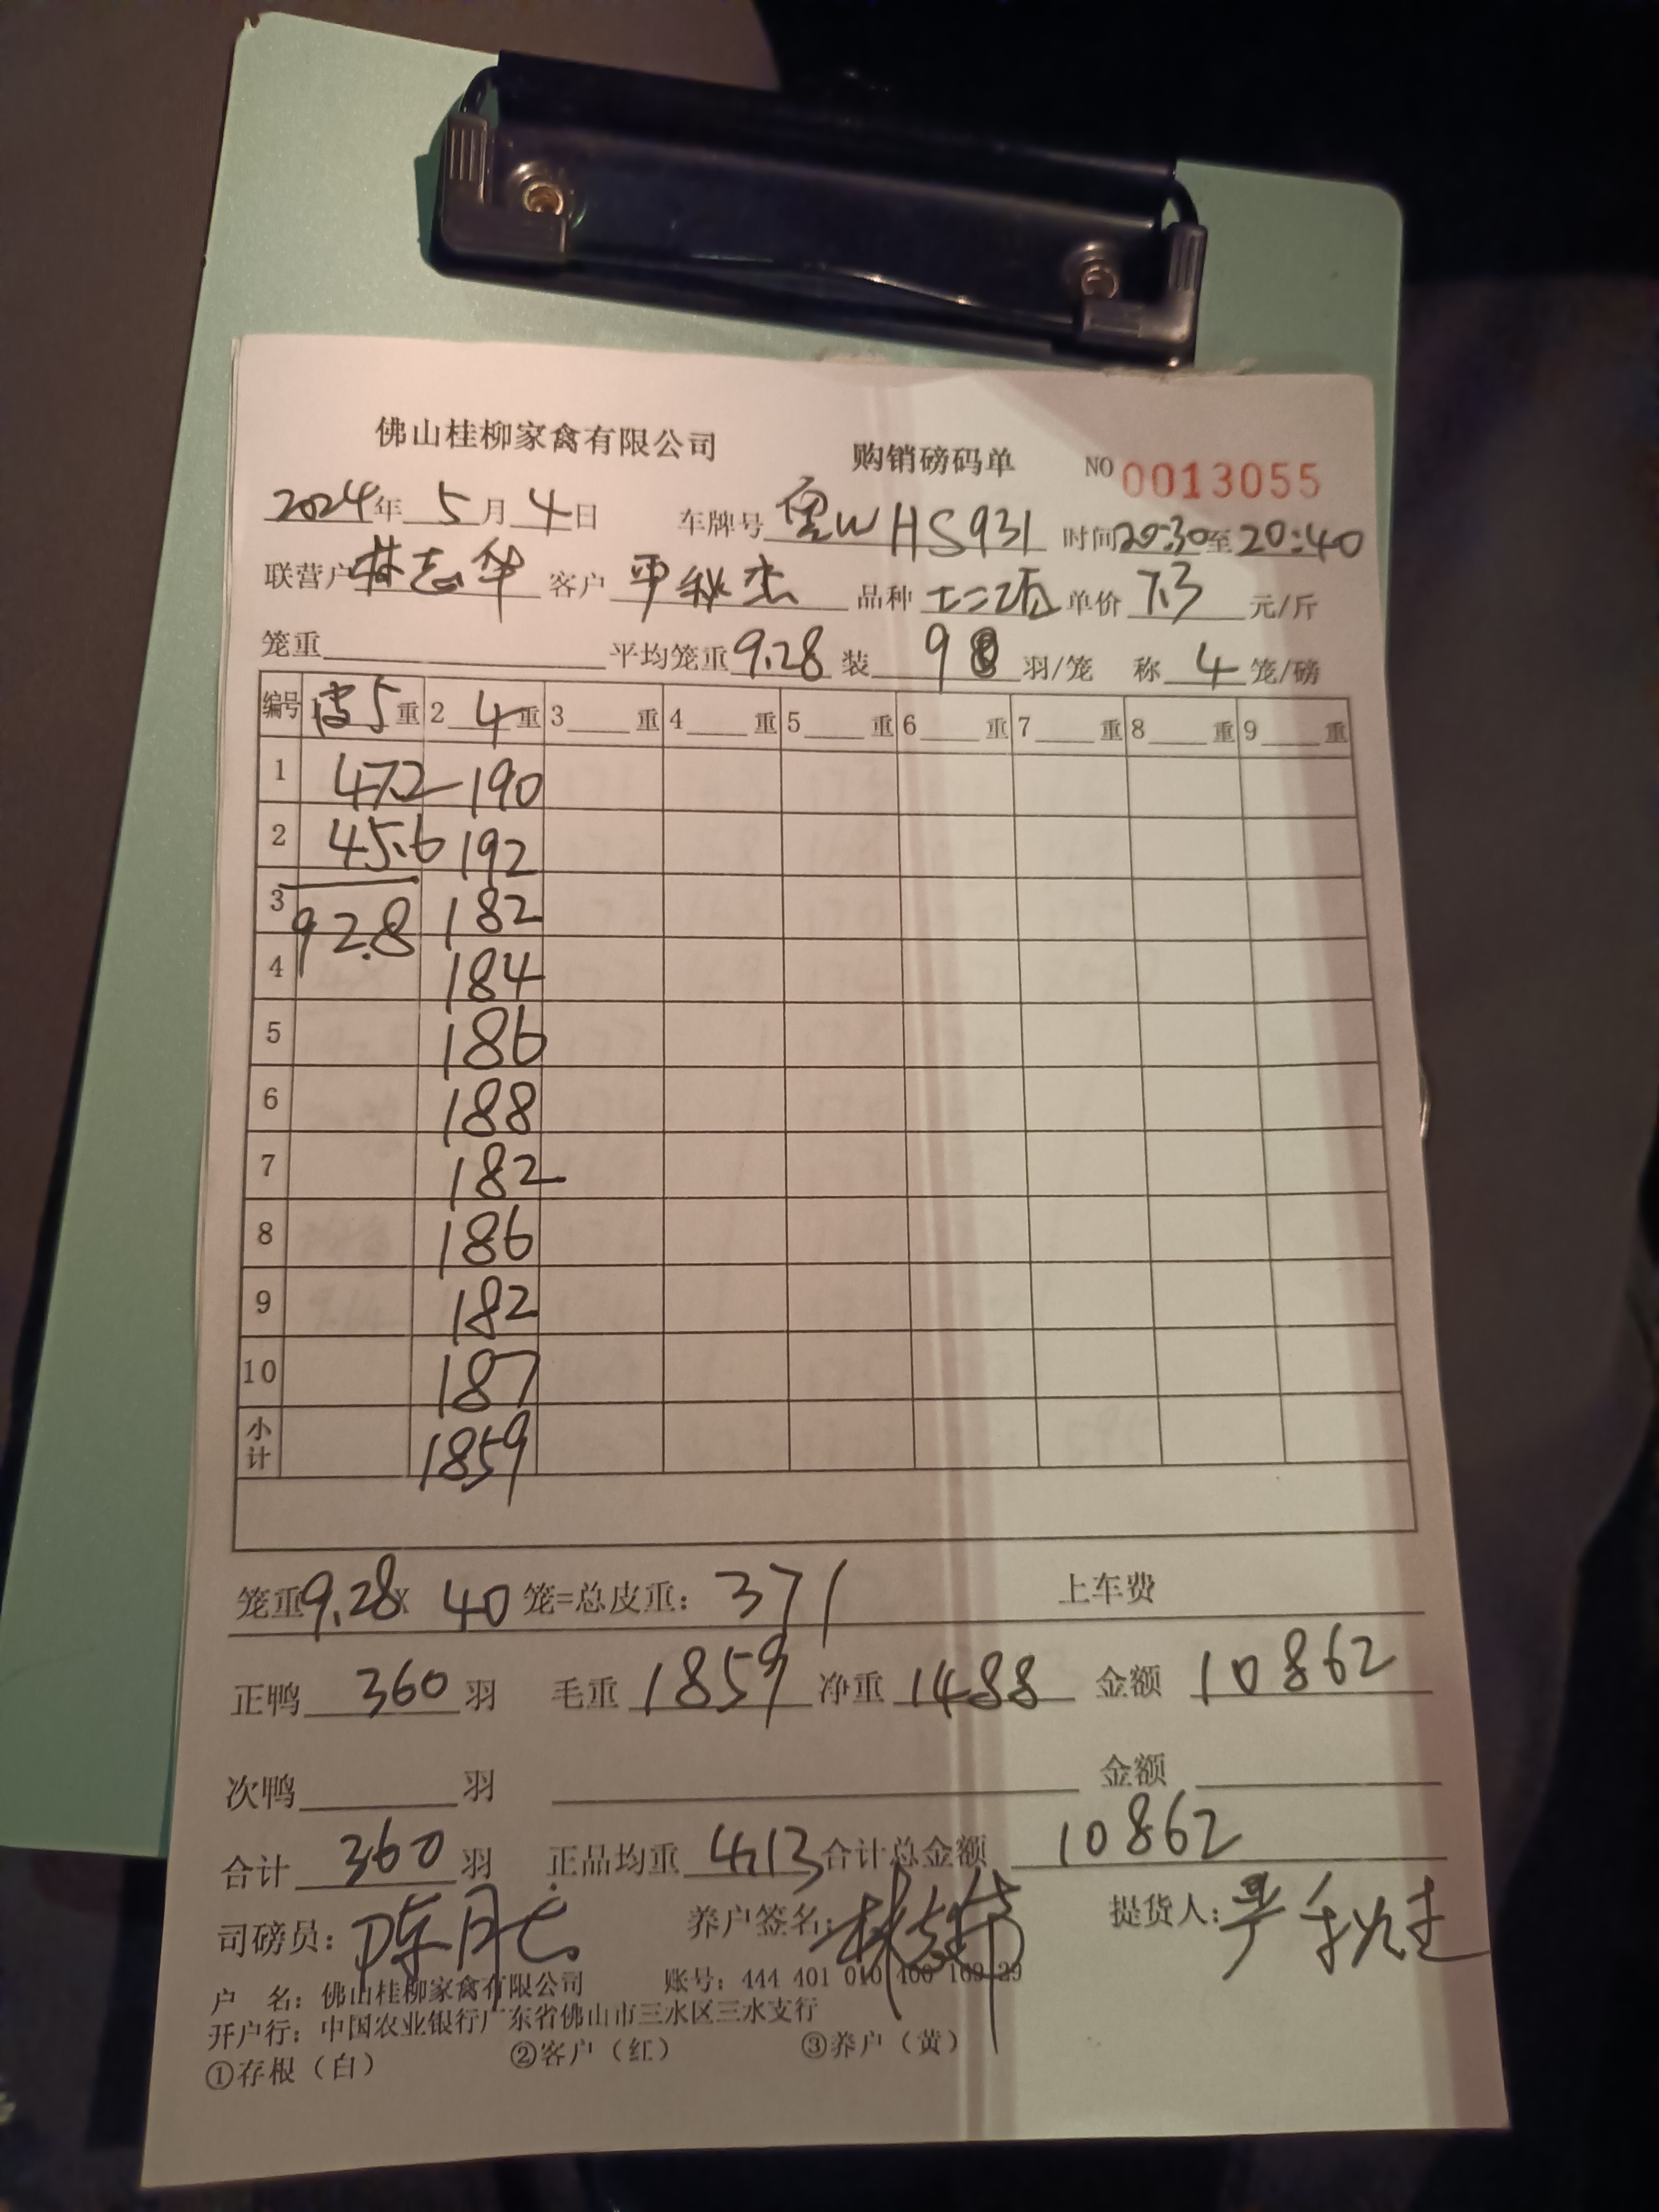 佛山桂柳家禽有限公司 购销磅码单 NO 0013055
2024年 5月 4日 车牌号 WHS931 时间 20:30 至 20:40
联营户 林志华 客户 平秋杰 品种 单价 7.3 元/斤
笼重 平均笼重 9.28 装 9 羽/笼 称 4 笼/磅
编号 皮5重 2 4重 3 重 4 重 5 重 6 重 7 重 8 重 9 重
1 47.2 190
2 45.6 192
3 92.8 182
4 184
5 186
6 188
7 182
8 186
9 182
10 187
小计 1859
笼重9.28X 40 笼=总皮重: 371 上车费
正鸭 360 羽 毛重 1859 净重 1488 金额 10862
次鸭 羽 金额
合计 360 羽 正品均重 4.13 合计总金额 10862
司磅员: 陈月 养户签名: 林志华 提货人: 严秋
户 名: 佛山桂柳家禽有限公司 账号: 444 401 010 400 169 29
开户行: 中国农业银行广东省佛山市三水区三水支行
①存根（白） ②客户（红） ③养户（黄）